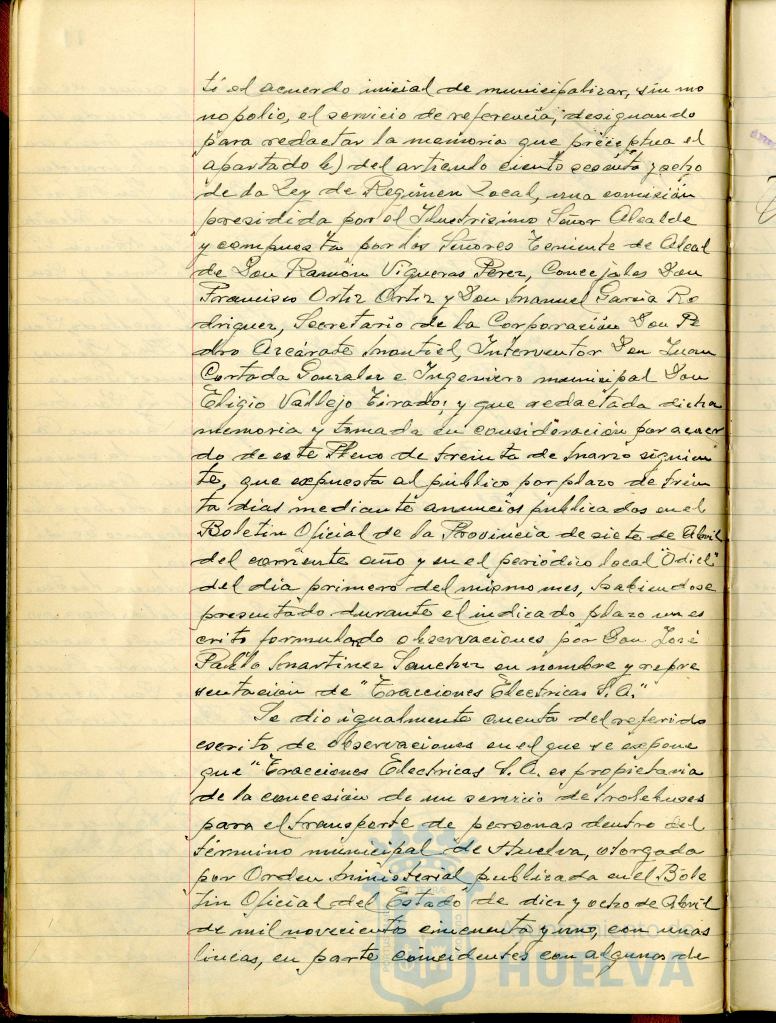 tó el acuerdo inicial de municipalizar, sin mo
nopolio, el servicio de referencia, designando
para redactar la memoria que preceptua el
apartado b) del articulo ciento sesenta y ocho
de la Ley de Regimen Local, una comisión
presidida por el Ilustrisimo Señor Alcalde
y compuesta por los Señores Teniente de Alcal
de Don Ramón Vigueras Perez, Concejales Don
Francisco Ortiz Ortiz y Don Manuel Garcia Ro
driguez, Secretario de la Corporación Don Pe
dro Azcárate Montiel, Interventor Don Juan
Cortada Gonzalez e Ingeniero municipal Don
Eligio Vallejo Tirado; y que redactada dicha
memoria y tomada en consideración por acuer
do de este Pleno de treinta de Marzo siguien
te, que expuesta al público por plazo de trein
ta dias mediante anuncios publicados en el
Boletin Oficial de la Provincia de siete de Abril
del corriente año y en el periódico local "Odiel"
del dia primero del mismo mes, habiendose
presentado durante el indicado plazo un es
crito formulando observaciones por Don José
Pablo Martinez Sanchez en nombre y repre
sentación de "Tracciones Electricas S.A."
Se dio igualmente cuenta del referido
escrito de observaciones en el que se expone
que "Tracciones Electricas S.A. es propietaria
de la concesión de un servicio de trolebuses
para el transporte de personas dentro del
término municipal de Huelva, otorgada
por Orden Ministerial publicada en el Bole
tin Oficial del Estado de diez y ocho de Abril
de mil novecientos cincuenta y uno, con unas
lineas, en parte coincidentes con algunas de
HUELVA